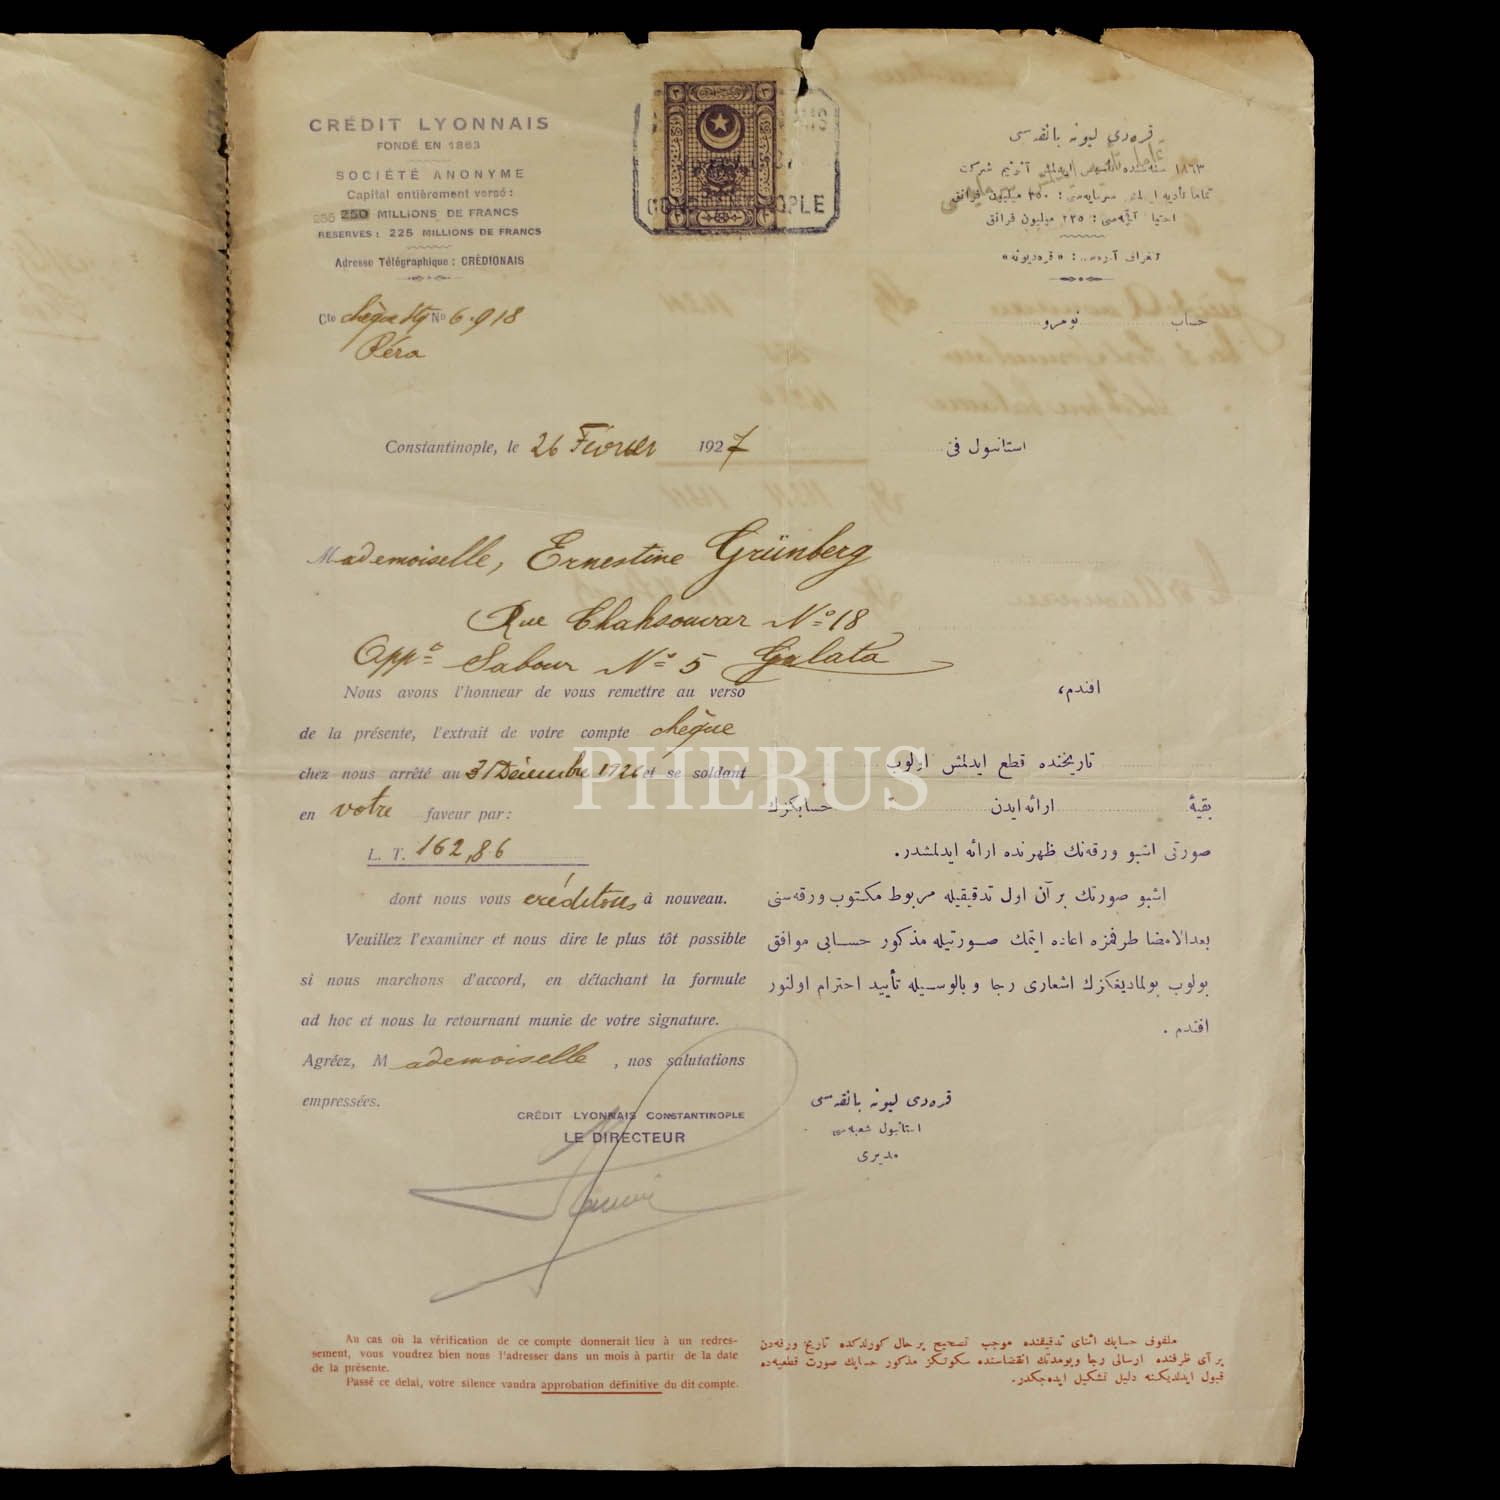 CRÉDIT LYONNAIS
FONDÉ EN 1863
SOCIÉTÉ ANONYME
Capital entièrement versé :
255 250 MILLIONS DE FRANCS
RESERVES : 225 MILLIONS DE FRANCS
Adresse Télégraphique : CRÉDIONAIS
Cte chèque No 6.918
Péra
CONSTANTINOPLE
قره‌دی لیونه بانقه‌سی
١٨٦٣ سنه‌سنده
میلیون فرانق
٢٢٥ میلیون فرانق
« قره‌دیونه »
حساب نومرو
Constantinople, le 26 Février 1927
استانبول فی
Mademoiselle, Ernestine Grünberg
Rue Chahsouvar No 18
Appt Sabour No 5 Galata
Nous avons l'honneur de vous remettre au verso
de la présente, l'extrait de votre compte chèque
chez nous arrêté au 31 Décembre 1926 et se soldant
en votre faveur par :
L. T. 162,86
dont nous vous créditons à nouveau.
Veuillez l'examiner et nous dire le plus tôt possible
si nous marchons d'accord, en détachant la formule
ad hoc et nous la retournant munie de votre signature.
Agréez, Mademoiselle, nos salutations
empressées.
CRÉDIT LYONNAIS CONSTANTINOPLE
LE DIRECTEUR
افندم،
تاریخنده قطع ایدلمش اولوب
بقیهٔ ارائه ایدن حسابكزك
صورتی اشبو ورقه‌نك ظهرنده ارائه ایدلمشدر.
اشبو صورتك بر آن اول تدقیقیله مربوط مكتوب ورقه‌سنی
بعدالامضا طرفمزه اعاده ایتمك صورتیله مذكور حسابی موافق
بولوب بولمادیغكزك اشعاری رجا و بالوسیله تأیید احترام اولنور
افندم .
قره‌دی لیونه بانقه‌سی
استانبول شعبه‌سی
مدیری
Au cas où la vérification de ce compte donnerait lieu à un redres-
sement, vous voudrez bien nous l'adresser dans un mois à partir de la date
de la présente.
Passé ce delai, votre silence vaudra approbation définitive du dit compte.
ملفوف حسابك اثنای تدقیقنده موجب تصحیح بر حال كورلدكده تاریخ ورقه‌دن
بر آی ظرفنده ارسالی رجا ومدتك انقضاسنده سكوتكز مذكور حسابك صورت قطعیه‌ده
قبول ایدلدیكنه دلیل تشكیل ایده‌جكدر.
PHEBUS